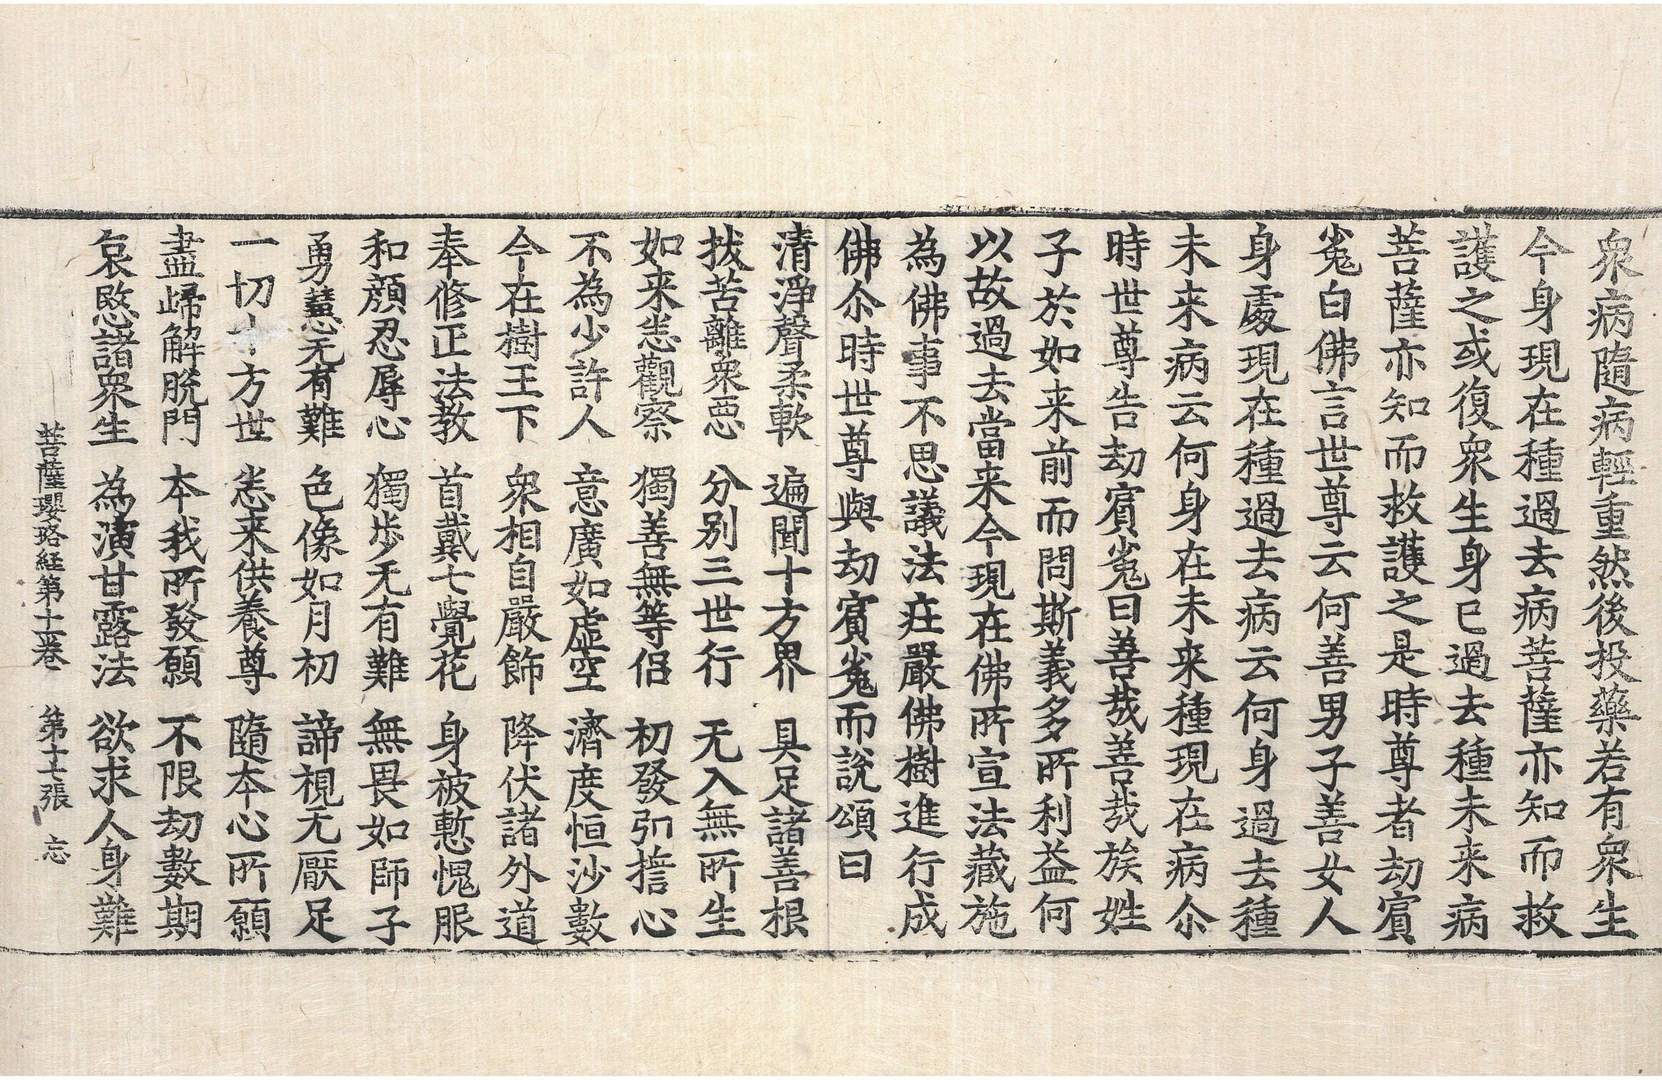 衆病隨病輕重然後投藥若有衆生
今身現在種過去病菩薩亦知而救
護之或復衆生身已過去種未来病
菩薩亦知而救護之是時尊者劫賓
㝹白佛言世尊云何善男子善女人
身處現在種過去病云何身過去種
未来病云何身在未来種現在病尒
時世尊告劫賓㝹曰善哉善哉族姓
子於如来前而問斯義多所利益何
以故過去當来今現在佛所宣法藏施
為佛事不思議法庄嚴佛樹進行成
佛尒時世尊與劫賓㝹而說頌曰
清淨聲柔軟　遍聞十方界　具足諸善根
拔苦離衆惡　分別三世行　无入無所生
如来悉觀察　獨善無等侣　初發弘誓心
不為少許人　意廣如虚空　濟度恒沙數
今在樹王下　衆相自嚴飾　降伏諸外道
奉修正法教　首戴七覺花　身被慙愧服
和顔忍辱心　獨步无有難　無畏如師子
勇慧无有難　色像如月初　諦視无厭足
一切十方世　悉来供養尊　隨本心所願
盡歸解脱門　本我所發願　不限劫數期
哀愍諸衆生　為演甘露法　欲求人身難
菩薩瓔珞経第十一卷　第十七張　忘